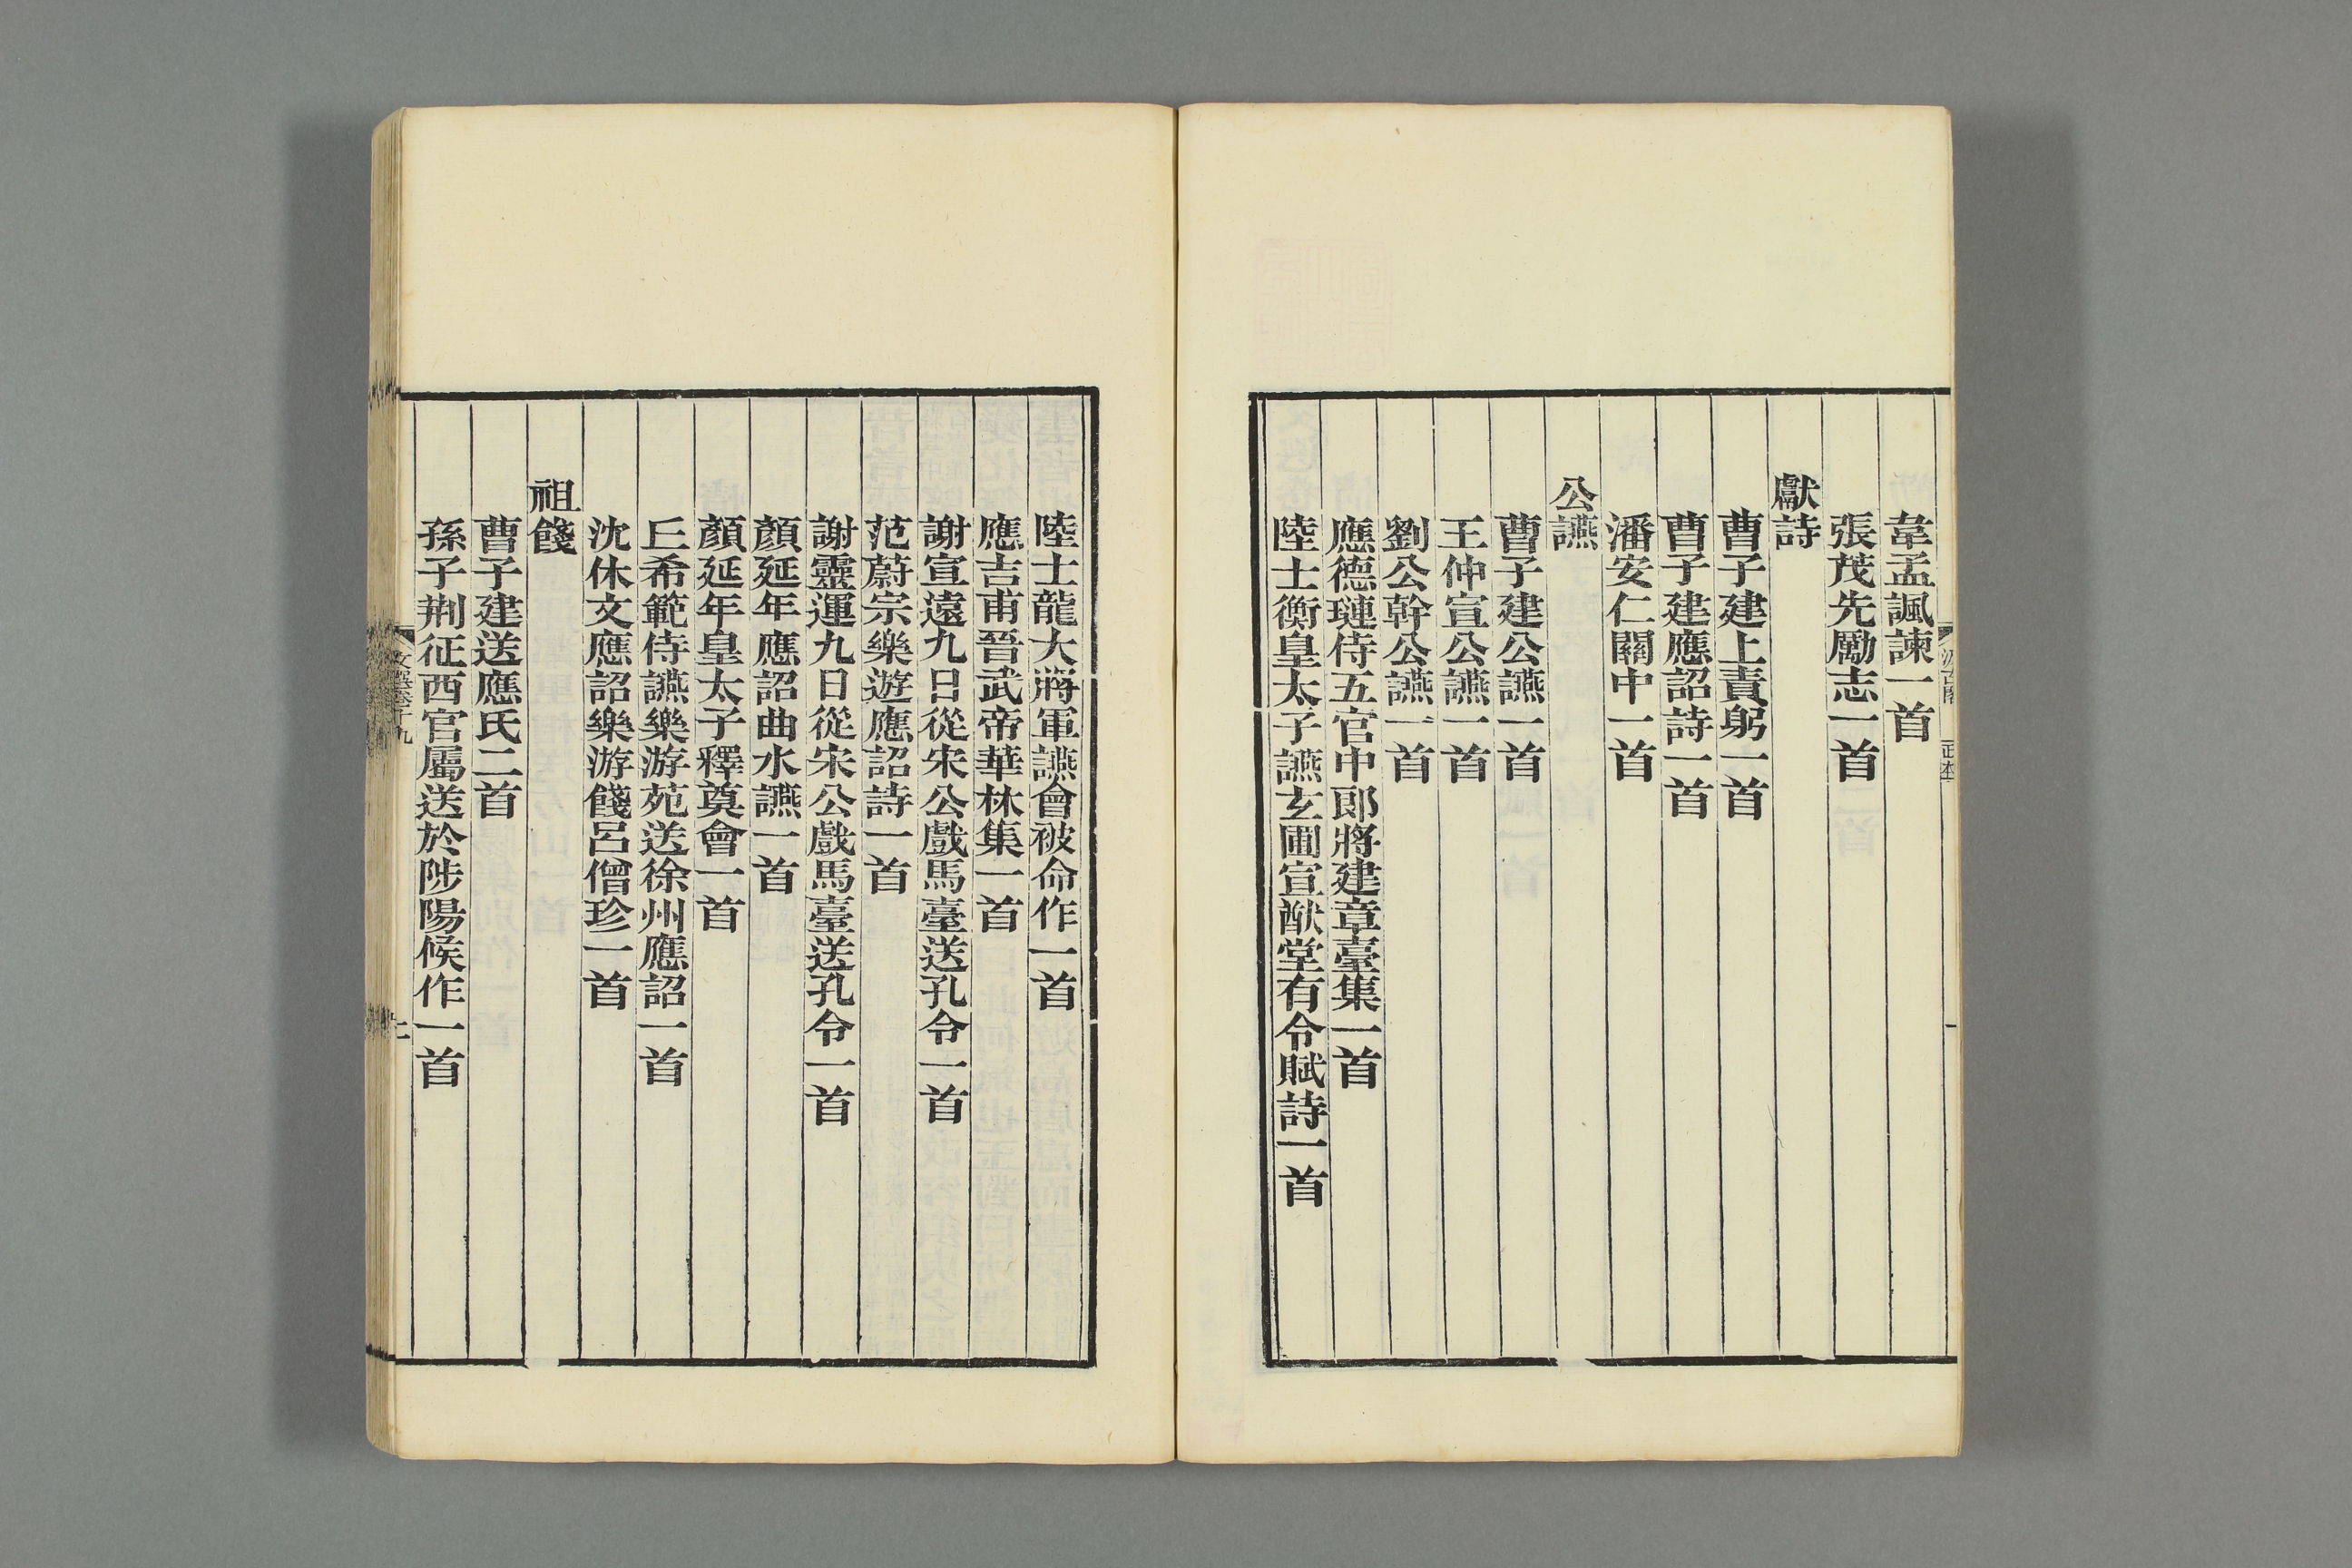 韋孟諷諫一首
張茂先勵志一首
獻詩
曹子建上責躬一首
曹子建應詔詩一首
潘安仁關中一首
公讌
曹子建公讌一首
王仲宣公讌一首
劉公幹公讌一首
應德璉侍五官中郎將建章臺集一首
陸士衡皇太子讌玄圃宣猷堂有令賦詩一首
陸士龍大將軍讌會被命作一首
應吉甫晉武帝華林集一首
謝宣遠九日從宋公戲馬臺送孔令一首
范蔚宗樂遊應詔詩一首
謝靈運九日從宋公戲馬臺送孔令一首
顏延年應詔曲水讌一首
顏延年皇太子釋奠會一首
丘希範侍讌樂游苑送徐州應詔一首
沈休文應詔樂游餞呂僧珍一首
祖餞
曹子建送應氏二首
孫子荆征西官屬送於陟陽候作一首
文選卷十九